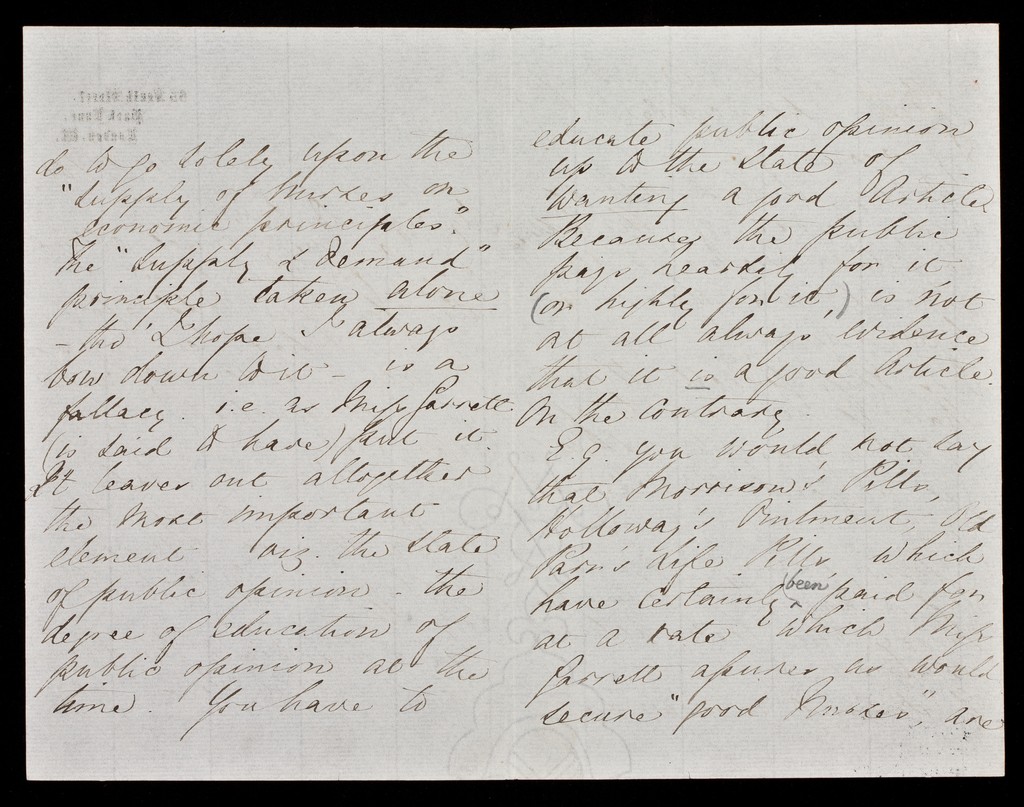 35 South Street,
Park Lane,
London. W.
do to go solely upon the
"supply of Nurses on
economic principles."
The "Supply & Demand"
principle taken alone
- tho' I hope I always
bow down to it - is a
fallacy. i.e. as Miss Garrett
(is said to have) put it
It leaves out altogether
the most important
element viz. the state
of public opinion - the
degree of education of
public opinion at the
time. You have to
educate public opinion
up to the state of
wanting a good Article
Because the public
pays heartily for it
(or highly for it,) is not
at all always evidence
that it is a good Article.
On the contrary.
E.g. you would not say
that Morrison's Pills,
Holloway's Ointment, Old
Parr's Life Pills, which
have certainly been paid for
at a rate which Miss
Garrett assures us would
secure "good Nurses", are